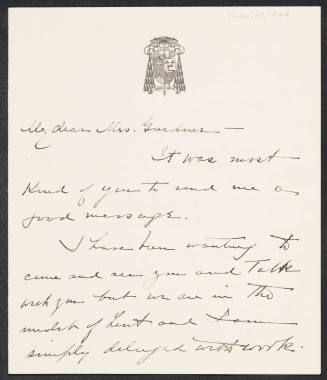 My dear Mrs. Gardner —
It was most
kind of you to send me a
good message.
I have been wanting to
come and see you and talk
with you but we are in the
midst of Lent and I am
simply deluged with work.